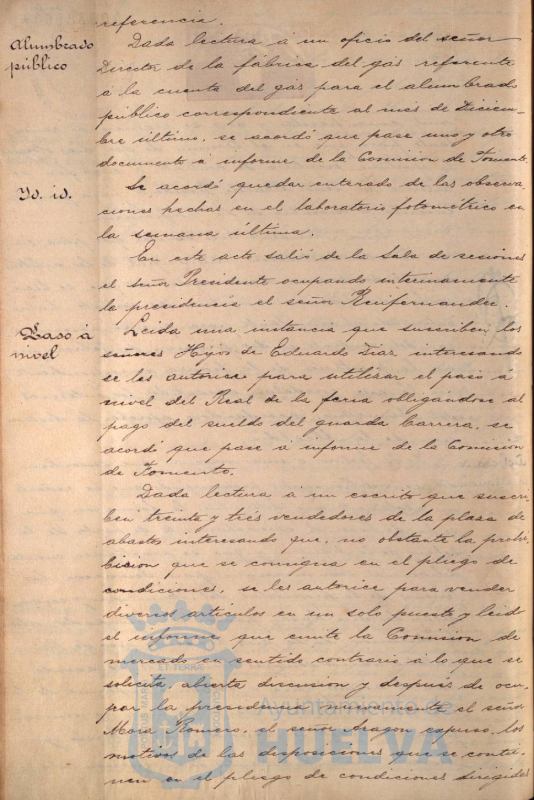 referencia.
Alumbrado
público
Dada lectura á un oficio del señor
Director de la fábrica del gas referente
á la cuenta del gas para el alumbrado
público correspondiente al mes de Diciem-
bre último, se acordó que pase uno y otro
documento á informe de la Comision de Fomento.
Yd. id.
Se acordó quedar enterado de las observa
ciones hechas en el laboratorio fotométrico en
la semana última.
En este acto salió de la Sala de sesiones
el señor Presidente ocupando interinamente
la presidencia el señor Ruifernandez.
Paso á
nivel
Leida una instancia que suscriben los
señores Hijos de Eduardo Diaz interesando
se les autorice para utilizar el paso á
nivel del Real de la feria obligandose al
pago del sueldo del guarda barrera, se
acordó que pase á informe de la Comision
de Fomento.
Dada lectura á un escrito que suscri-
ben treinta y tres vendedores de la plaza de
abastos interesando que, no obstante la prohi
bicion que se consigna en el pliego de
condiciones, se les autorice para vender
diversos artículos en un solo puesto y leido
el informe que emite la Comision de
mercado en sentido contrario á lo que se
solicita, abierta discusion y después de ocu-
par la presidencia nuevamente el señor
Mora Romero, el señor Aragon expuso los
motivos de las disposiciones que se contie-
nen en el pliego de condiciones dirigidas
Ayuntamiento de
HUELVA